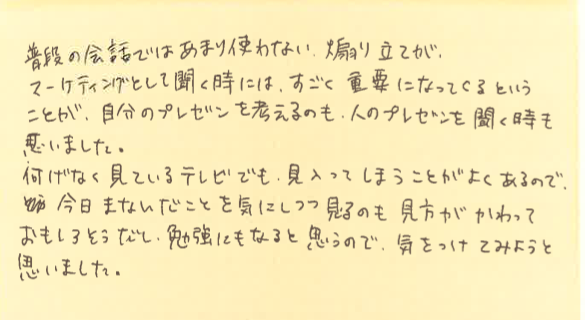 普段の会話ではあまり使わない、煽り立てが、
マーケティングとして聞く時には、すごく重要になってくるという
ことが、自分のプレゼンを考えるのも、人のプレゼンを聞く時も
思いました。
何げなく見ているテレビでも、見入ってしまうことがよくあるので、
今日まないだことを気にしつつ見るのも見方がかわって
おもしろそうだし、勉強にもなると思うので、気をつけてみようと
思いました。